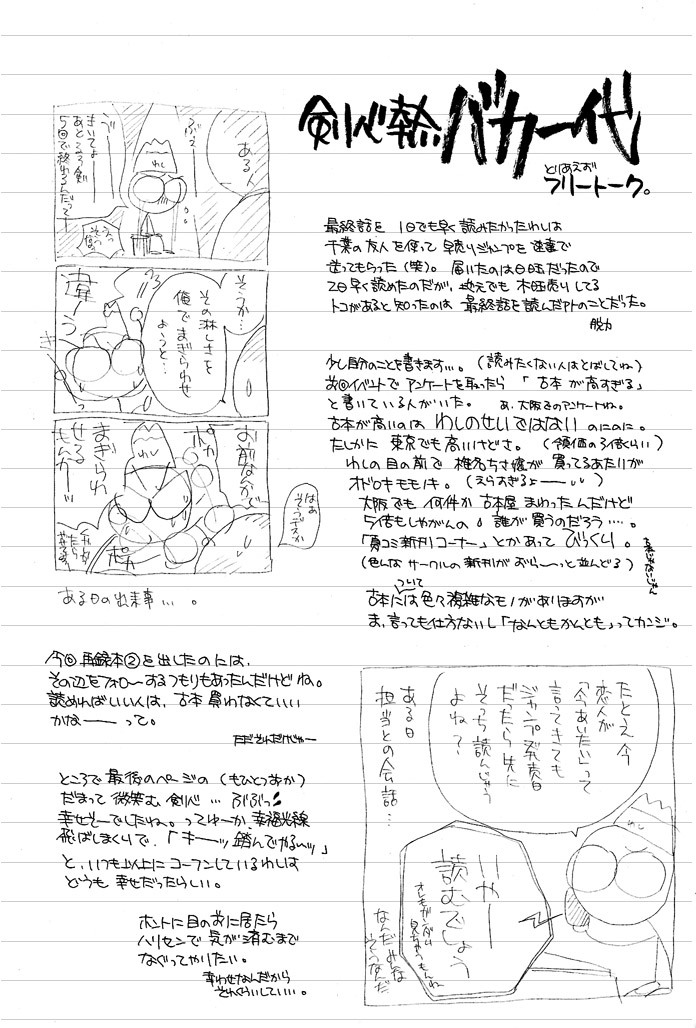 剣心熱バカ一代
とりあえず
フリートーク。
最終話を 1日でも早く読みたかったわしは
千葉の友人を使って早売りジャンプを速達で
送ってもらった(笑)。届いたのは日曜だったので
2日早く読めたのだが、地元でも木曜売りしてる
トコがあると知ったのは最終話を読んだアトのことだった。
脱力
少し自分のことを書きます…。(読みたくない人はとばしてね)
前回イベントでアンケートを取ったら「古本が高すぎる」
と書いている人がいた。 あ、大阪でのアンケートね。
古本が高いのはわしのせいではないのにのに。
たしかに東京でも高いけどさ。(領価の3倍くらい)
わしの目の前で椎名ちさ嬢が買ってるあたりが
オドロキモモノキ。(えらすぎるよー
大阪でも何件か古本屋まわったんだけど
5倍もしやがんの。誰が買うのだろう…。
「夏コミ新刊コーナー」とかあってびっくり。
古本じゃないじゃん
(色んなサークルの新刊がずら〜っと並んどる)
古本には色々複雑なモノがありますが
ついて
ま、言っても仕方ないし「なんともかんとも」ってカンジ。
ある人
ぶえ
きいてよー
あと るろ剣
5回で終わるんだってー
えっ
そう…
その淋しさを
俺でまぎらわせ
ようと…
違ーう
お前なんかで
まぎらわ
せる
もんかーッ
ポカ
ポカ
はあ
そうデスか
わし
ある日の出来事…。
今回再録本②を出したのには、
その辺をフォローするつもりもあったんだけどね。
読めればいい人は、古本買わなくていい
かなーって。
ただそんだけじゃー
ところで最後のページの(もひとつおか)
だまって微笑む剣心…ぶぶっ
幸せそーでしたね。ってゆーか、幸福光線
飛ばしまくりで、「キーッ踏んでやるーッ」
と、いつも以上にコーフンしているわしは
どうも幸せだったらしい。
ホントに目の前に居たら
ハリセンで気が済むまで
なぐってやりたい。
幸わせなんだから
それくらいしていい。
たとえ今
恋人が
「今あいたい」って
言ってきても
ジャンプ発売日
だったら先に
そっち読んじゃう
よね?
ある日
担当との会話…
いやー
読むでしょう
なんだみんな
そうなんだ